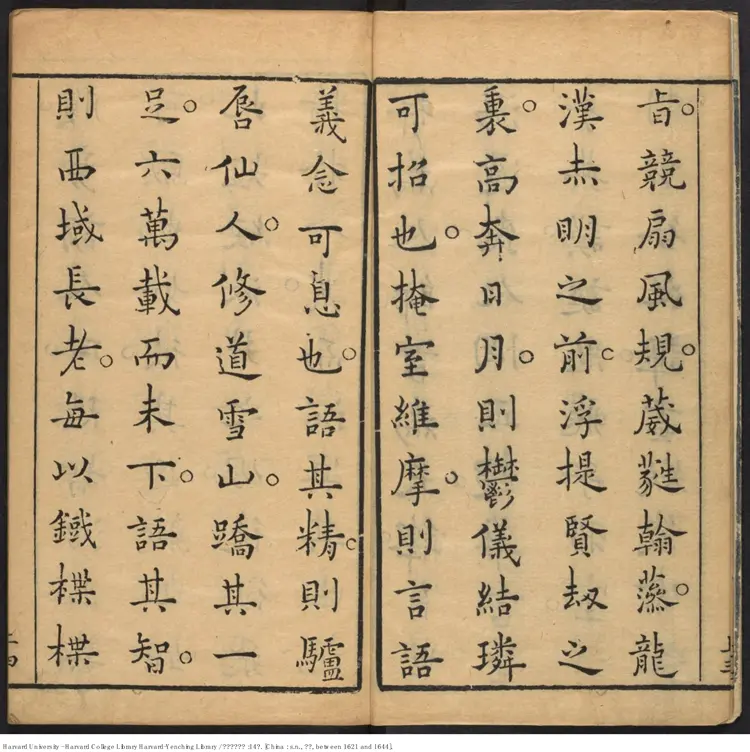 旨競扇風規葳蕤翰藻龍
漢赤明之前浮提賢劫之
裏高奔日月則鬱儀結璘
可招也掩室維摩則言語
義念可息也語其精則驢
唇仙人修道雪山蹻其一
足六萬載而未下語其智
則西域長老每以鐵楪楪
Harvard University - Harvard College Library Harvard-Yenching Library / ?????? :14?. [China : s.n., ??, between 1621 and 1644].